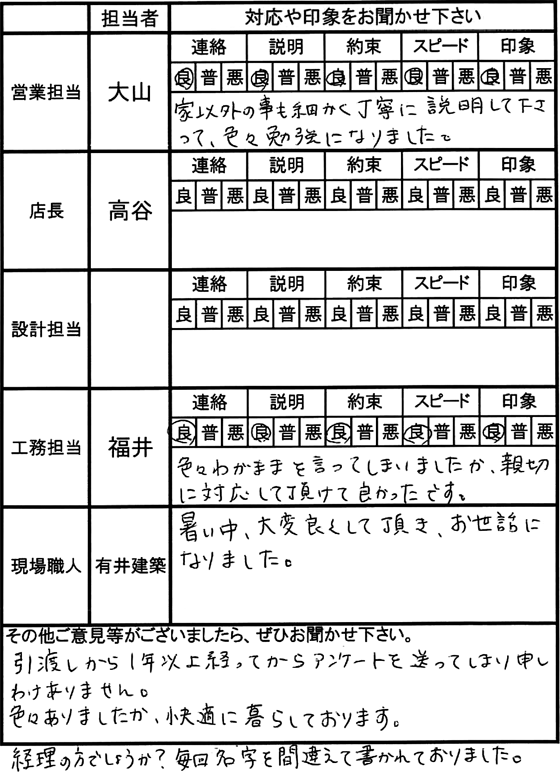 担当者 対応や印象をお聞かせ下さい
営業担当 大山
連絡 説明 約束 スピード 印象
良 普 悪 良 普 悪 良 普 悪 良 普 悪 良 普 悪
家以外の事も細かく丁寧に説明して下さ
って、色々勉強になりました。
店長 高谷
連絡 説明 約束 スピード 印象
良 普 悪 良 普 悪 良 普 悪 良 普 悪 良 普 悪
設計担当
連絡 説明 約束 スピード 印象
良 普 悪 良 普 悪 良 普 悪 良 普 悪 良 普 悪
工務担当 福井
連絡 説明 約束 スピード 印象
良 普 悪 良 普 悪 良 普 悪 良 普 悪 良 普 悪
色々わがままを言ってしまいましたが、親切
に対応して頂けて良かったです。
現場職人 有井建築
暑い中、大変良くして頂き、お世話に
なりました。
その他ご意見等がございましたら、ぜひお聞かせ下さい。
引渡しから1年以上経ってからアンケートを送ってしまい申し
わけありません。
色々ありましたが、快適に暮らしております。
経理の方でしょうか?毎回名字を間違えて書かれておりました。